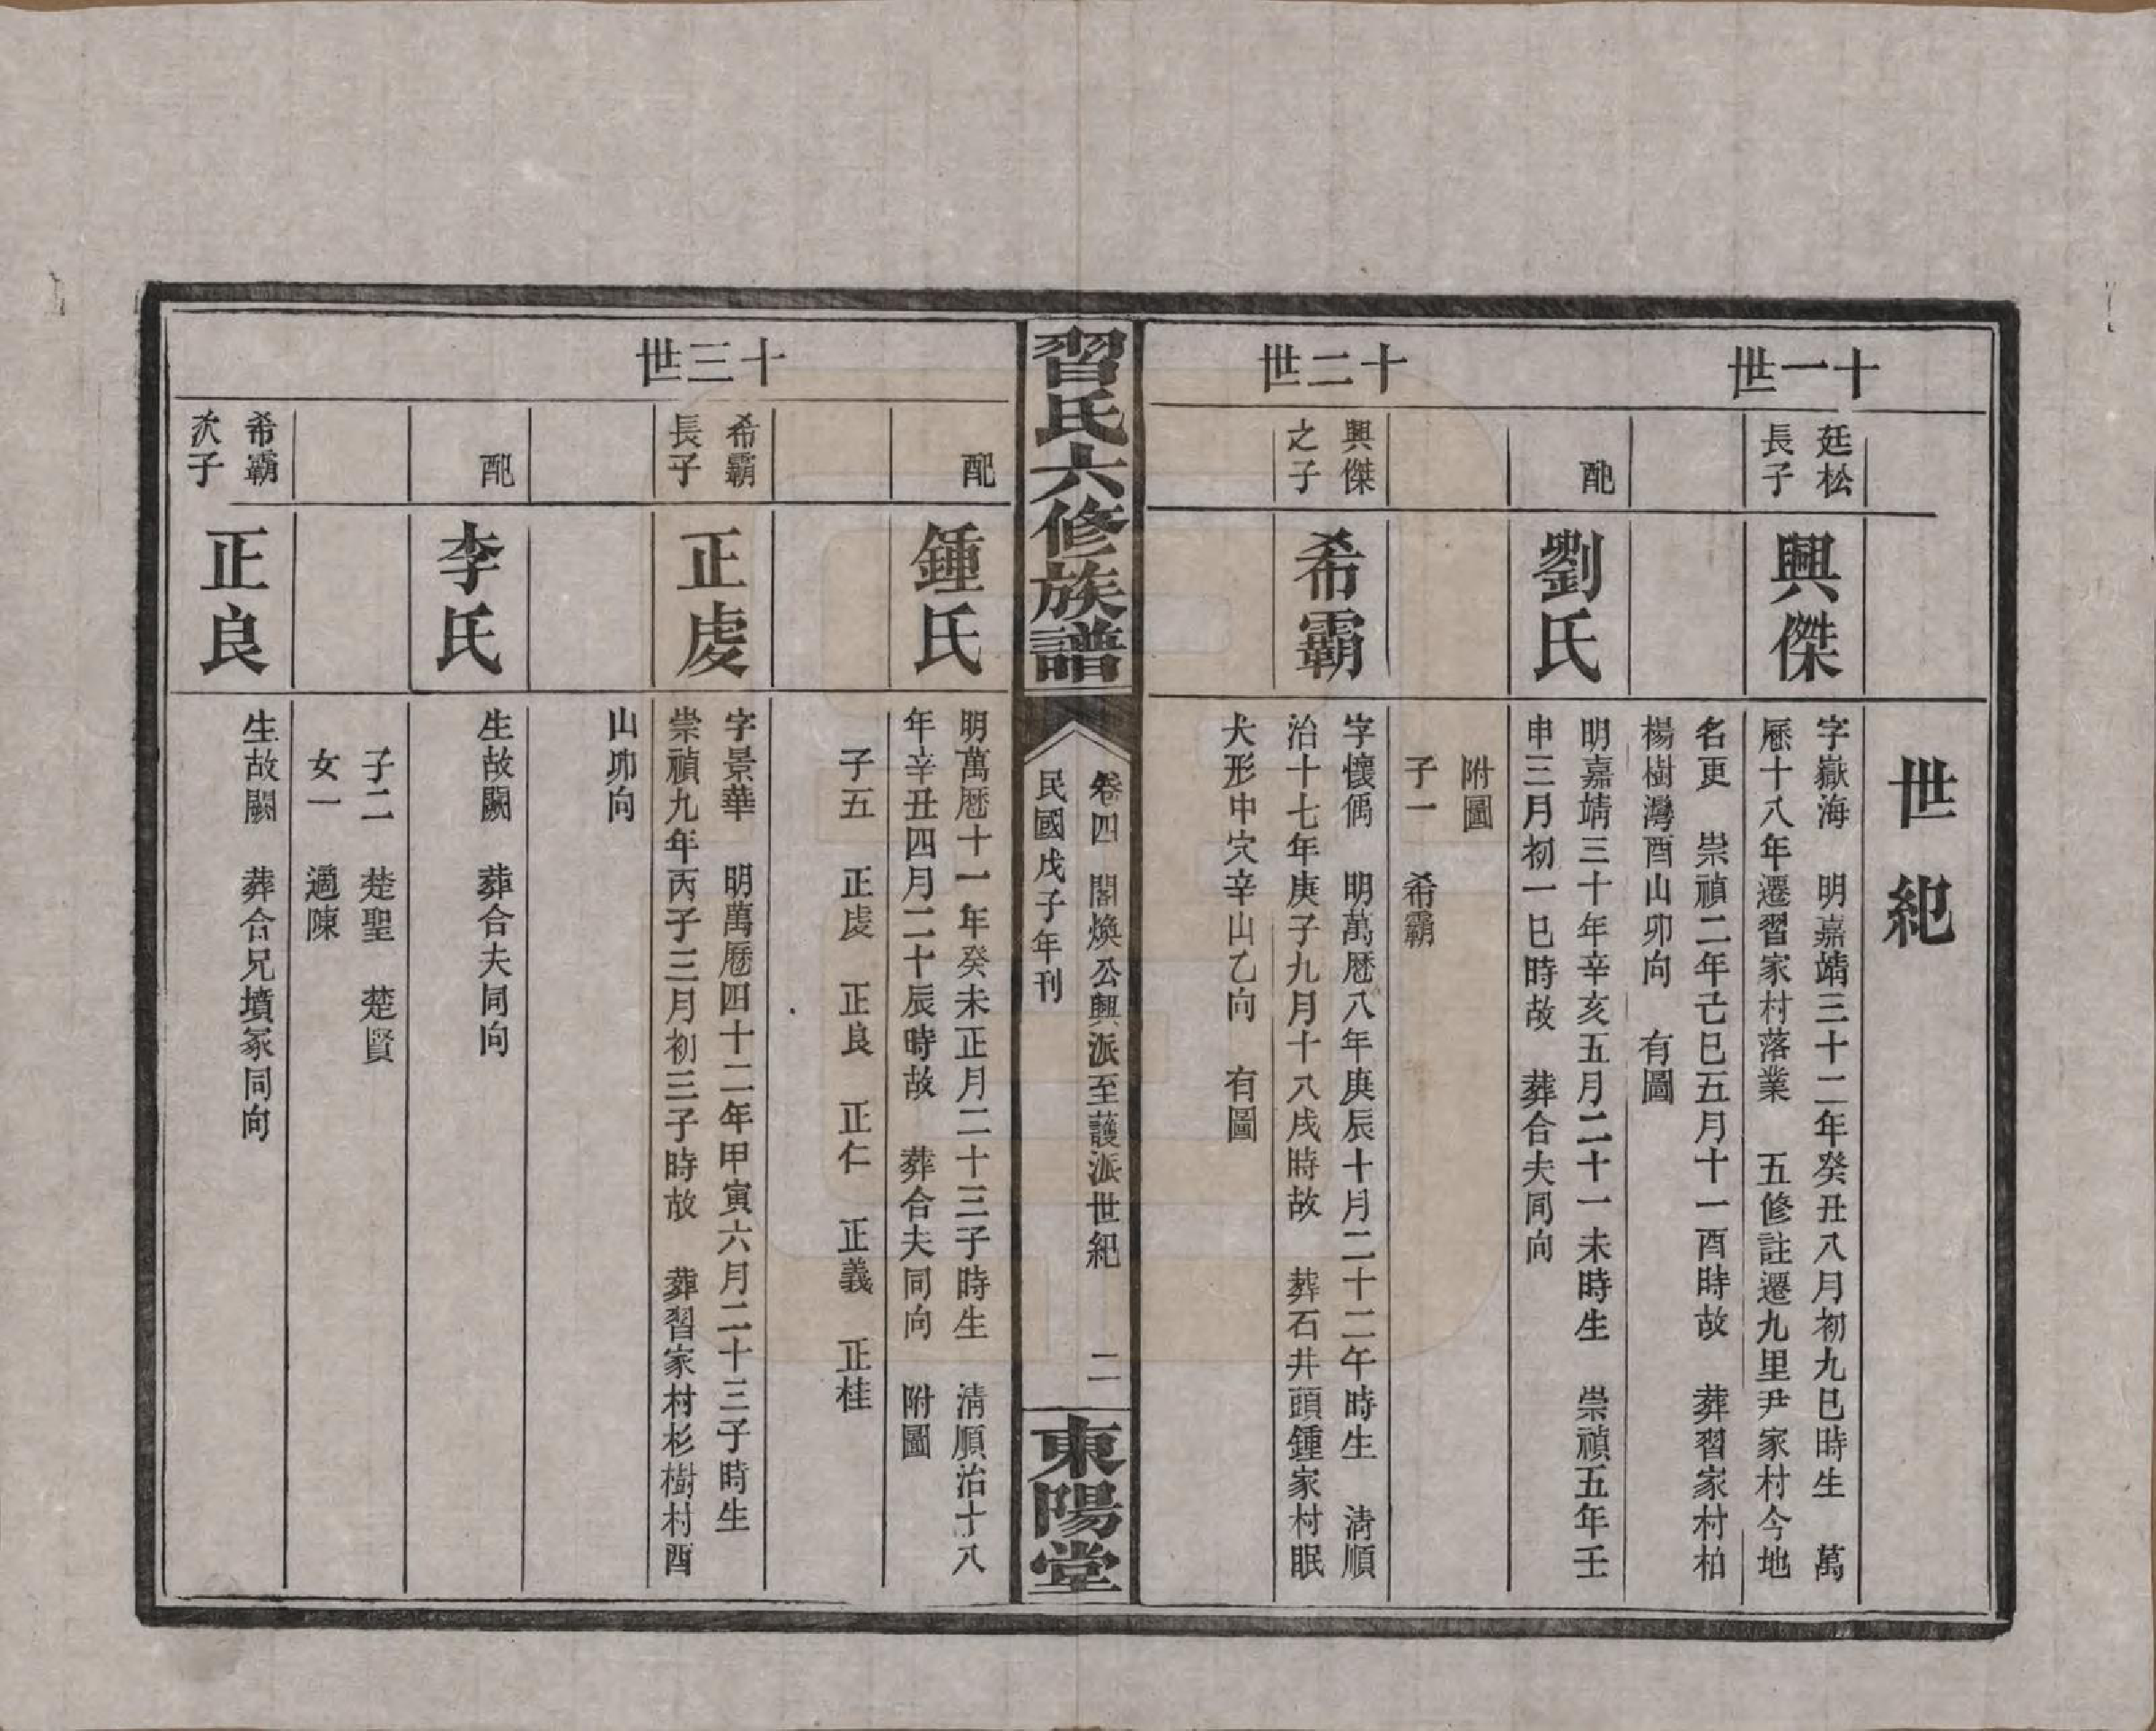 世紀
十一世
廷松
長子
興傑
字嶽海　明嘉靖三十二年癸丑八月初九巳時生　萬
曆十八年遷習家村落業　五修註遷九里尹家村今地
名更　崇禎二年己巳五月十一酉時故　葬習家村柏
楊樹灣酉山卯向　有圖
配
劉氏
明嘉靖三十年辛亥五月二十一未時生　崇禎五年壬
申三月初一巳時故　葬合夫同向
附圖
子一　希霸
十二世
興傑
之子
希霸
字懷偶　明萬曆八年庚辰十月二十二午時生　清順
治十七年庚子九月十八戌時故　葬石井頭鍾家村眠
犬形中穴辛山乙向　有圖
習氏六修族譜
卷四　閣煥公興派至護派世紀　二
民國戊子年刊
東陽堂
配
鍾氏
明萬曆十一年癸未正月二十三子時生　清順治十八
年辛丑四月二十辰時故　葬合夫同向　附圖
子五　正虔　正良　正仁　正義　正桂
十三世
希霸
長子
正虔
字景華　明萬曆四十二年甲寅六月二十三子時生
崇禎九年丙子三月初三子時故　葬習家村杉樹村酉
山卯向
配
李氏
生故闕　葬合夫同向
子二　楚聖　楚賢
女一　適陳
希霸
次子
正良
生故闕　葬合兄墳冢同向